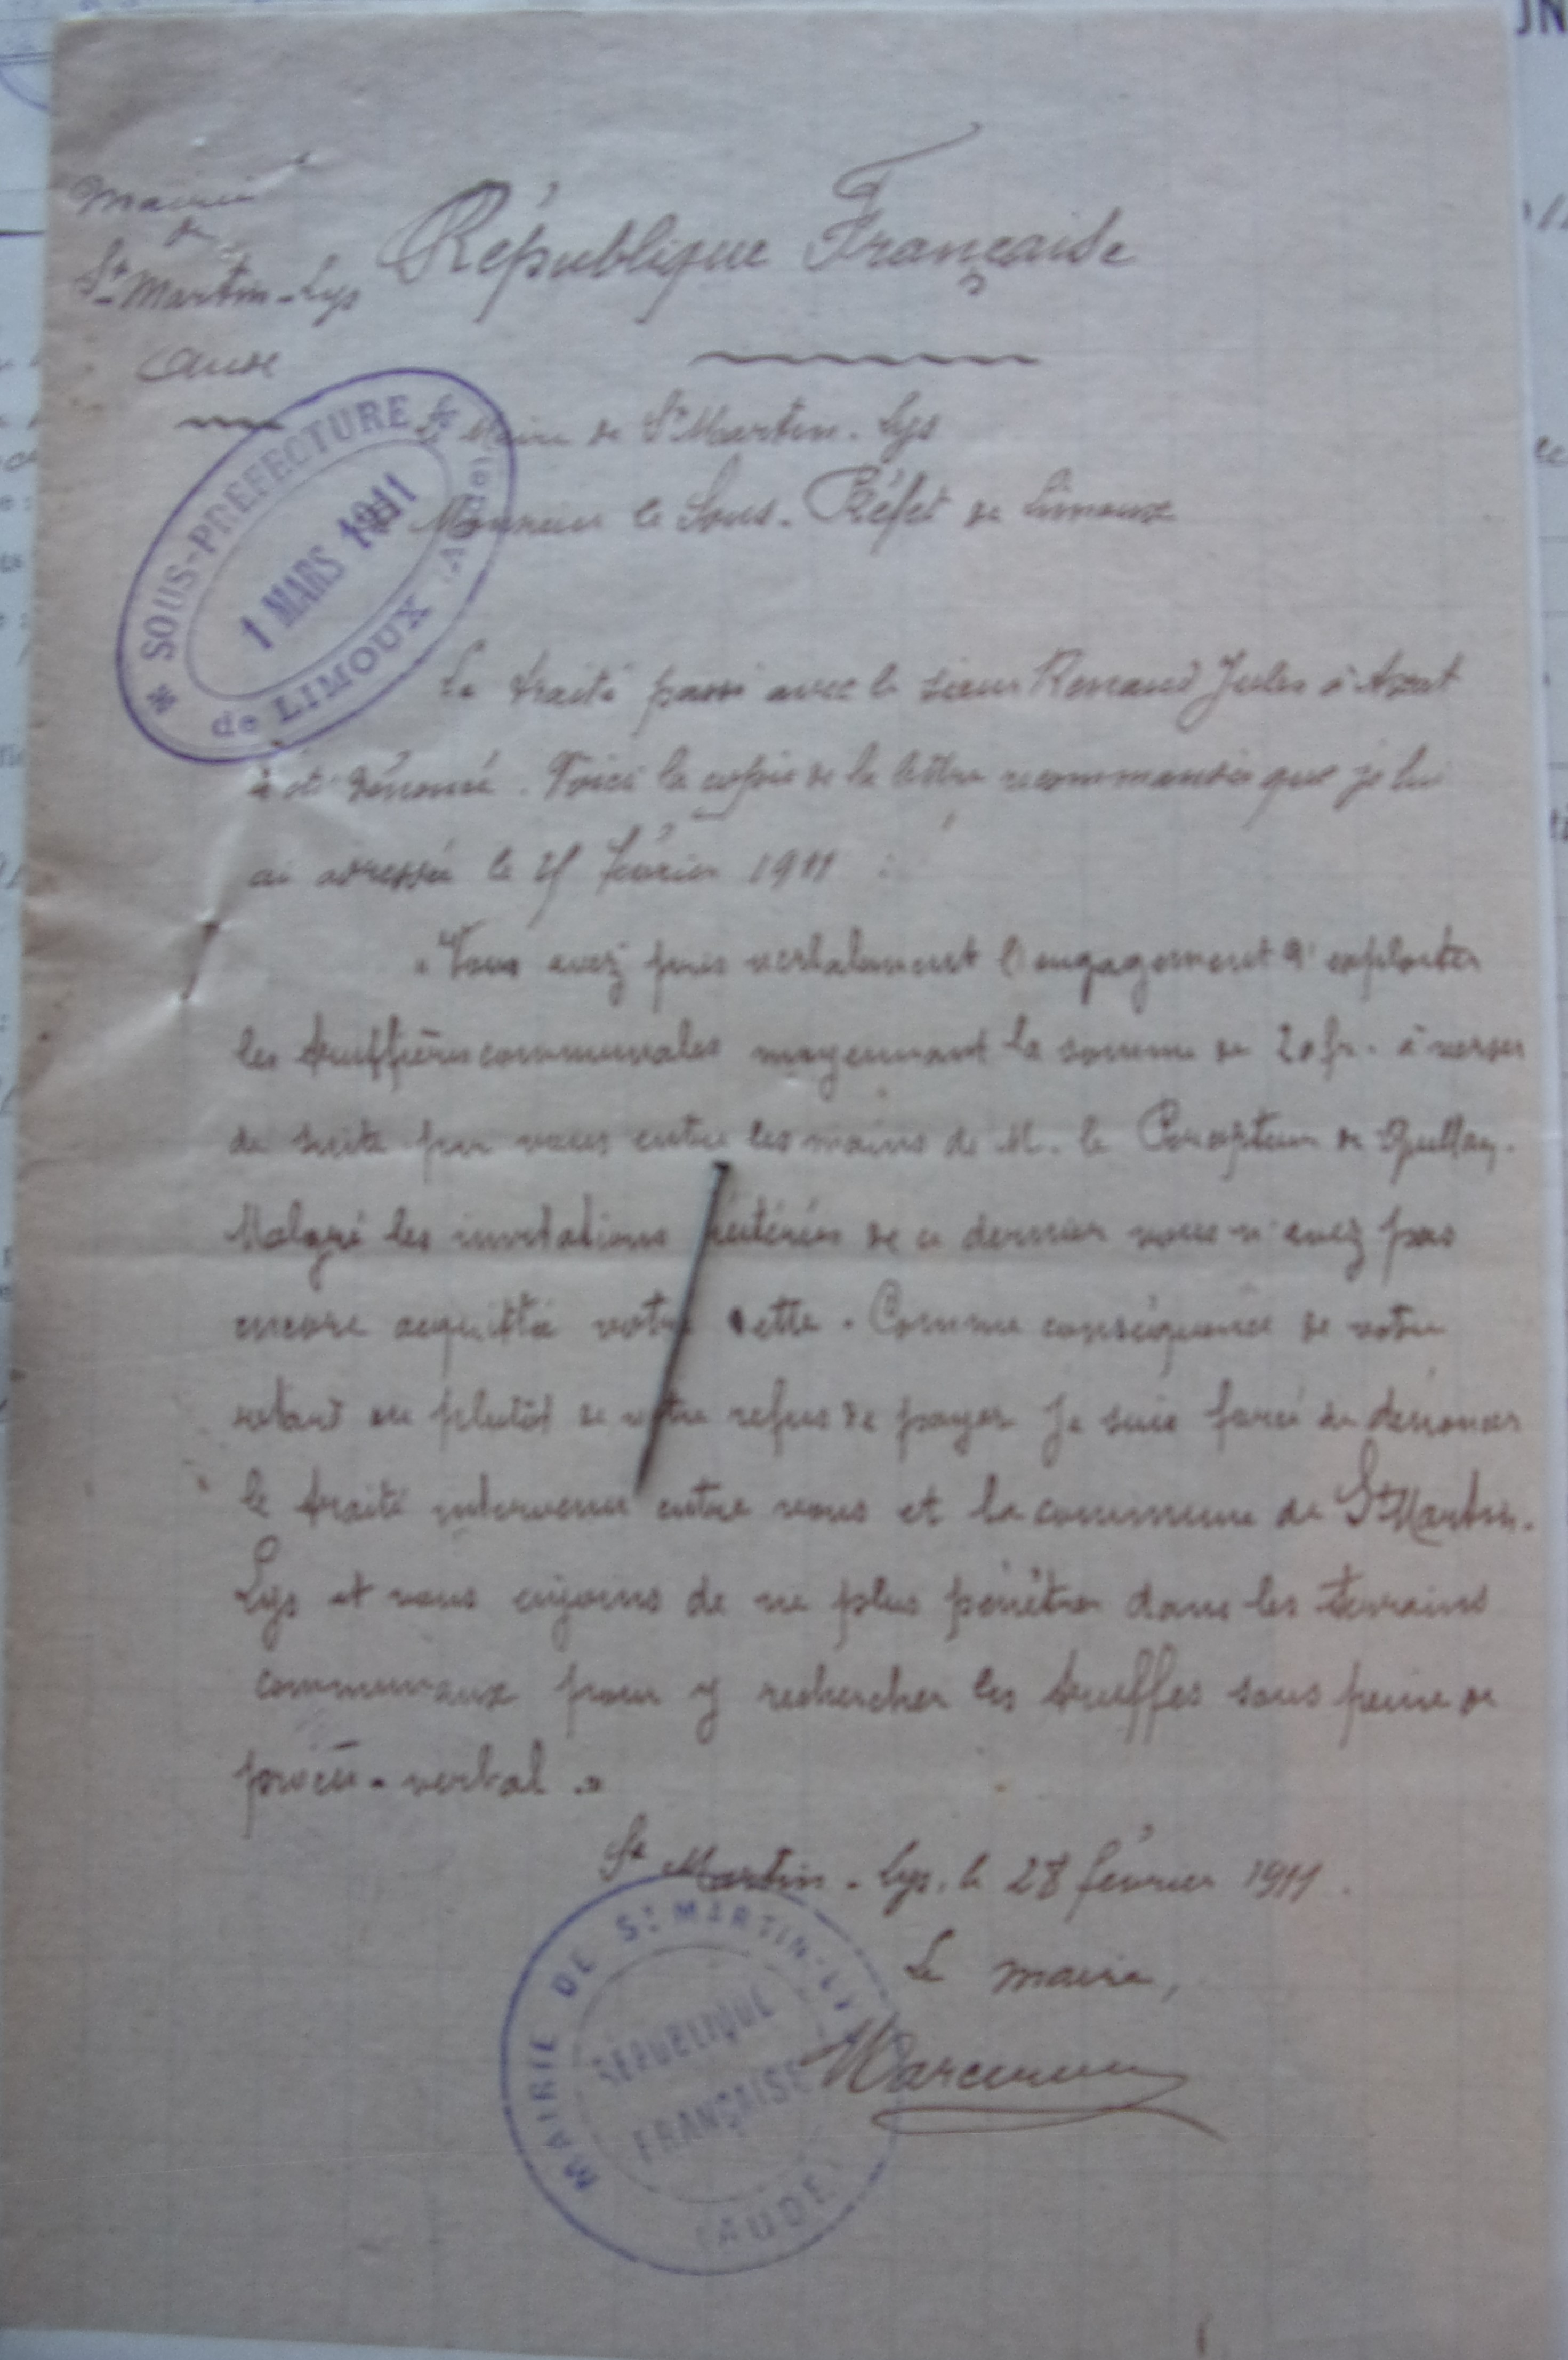 Mairie
de
St Martin-Lys
Aude
République Française
SOUS-PREFECTURE
1 MARS 1911
de LIMOUX (Aude)
Le Maire de St Martin-Lys
Monsieur le Sous-Préfet de Limoux
Le traité passé avec le sieur Renaud Jules à Axat
a été dénoncé. Voici la copie de la lettre recommandée que je lui
ai adressée le février 1911 :
« Vous avez pris verbalement l'engagement d'exploiter
les truffières communales moyennant la somme de 20 fr. à verser
de suite par vous entre les mains de M. le Percepteur de Quillan.
Malgré les invitations réitérées de ce dernier vous n'avez pas
encore acquitté votre dette. Comme conséquence de votre
retard ou plutôt de votre refus de payer je suis forcé de dénoncer
le traité intervenu entre vous et la commune de St Martin-
Lys et vous enjoins de ne plus pénétrer dans les terrains
communaux pour y rechercher les truffes sous peine de
procès-verbal. »
St Martin-Lys, le 28 février 1911.
Le maire,
MAIRIE DE St MARTIN-LYS
RÉPUBLIQUE
FRANÇAISE
(AUDE)